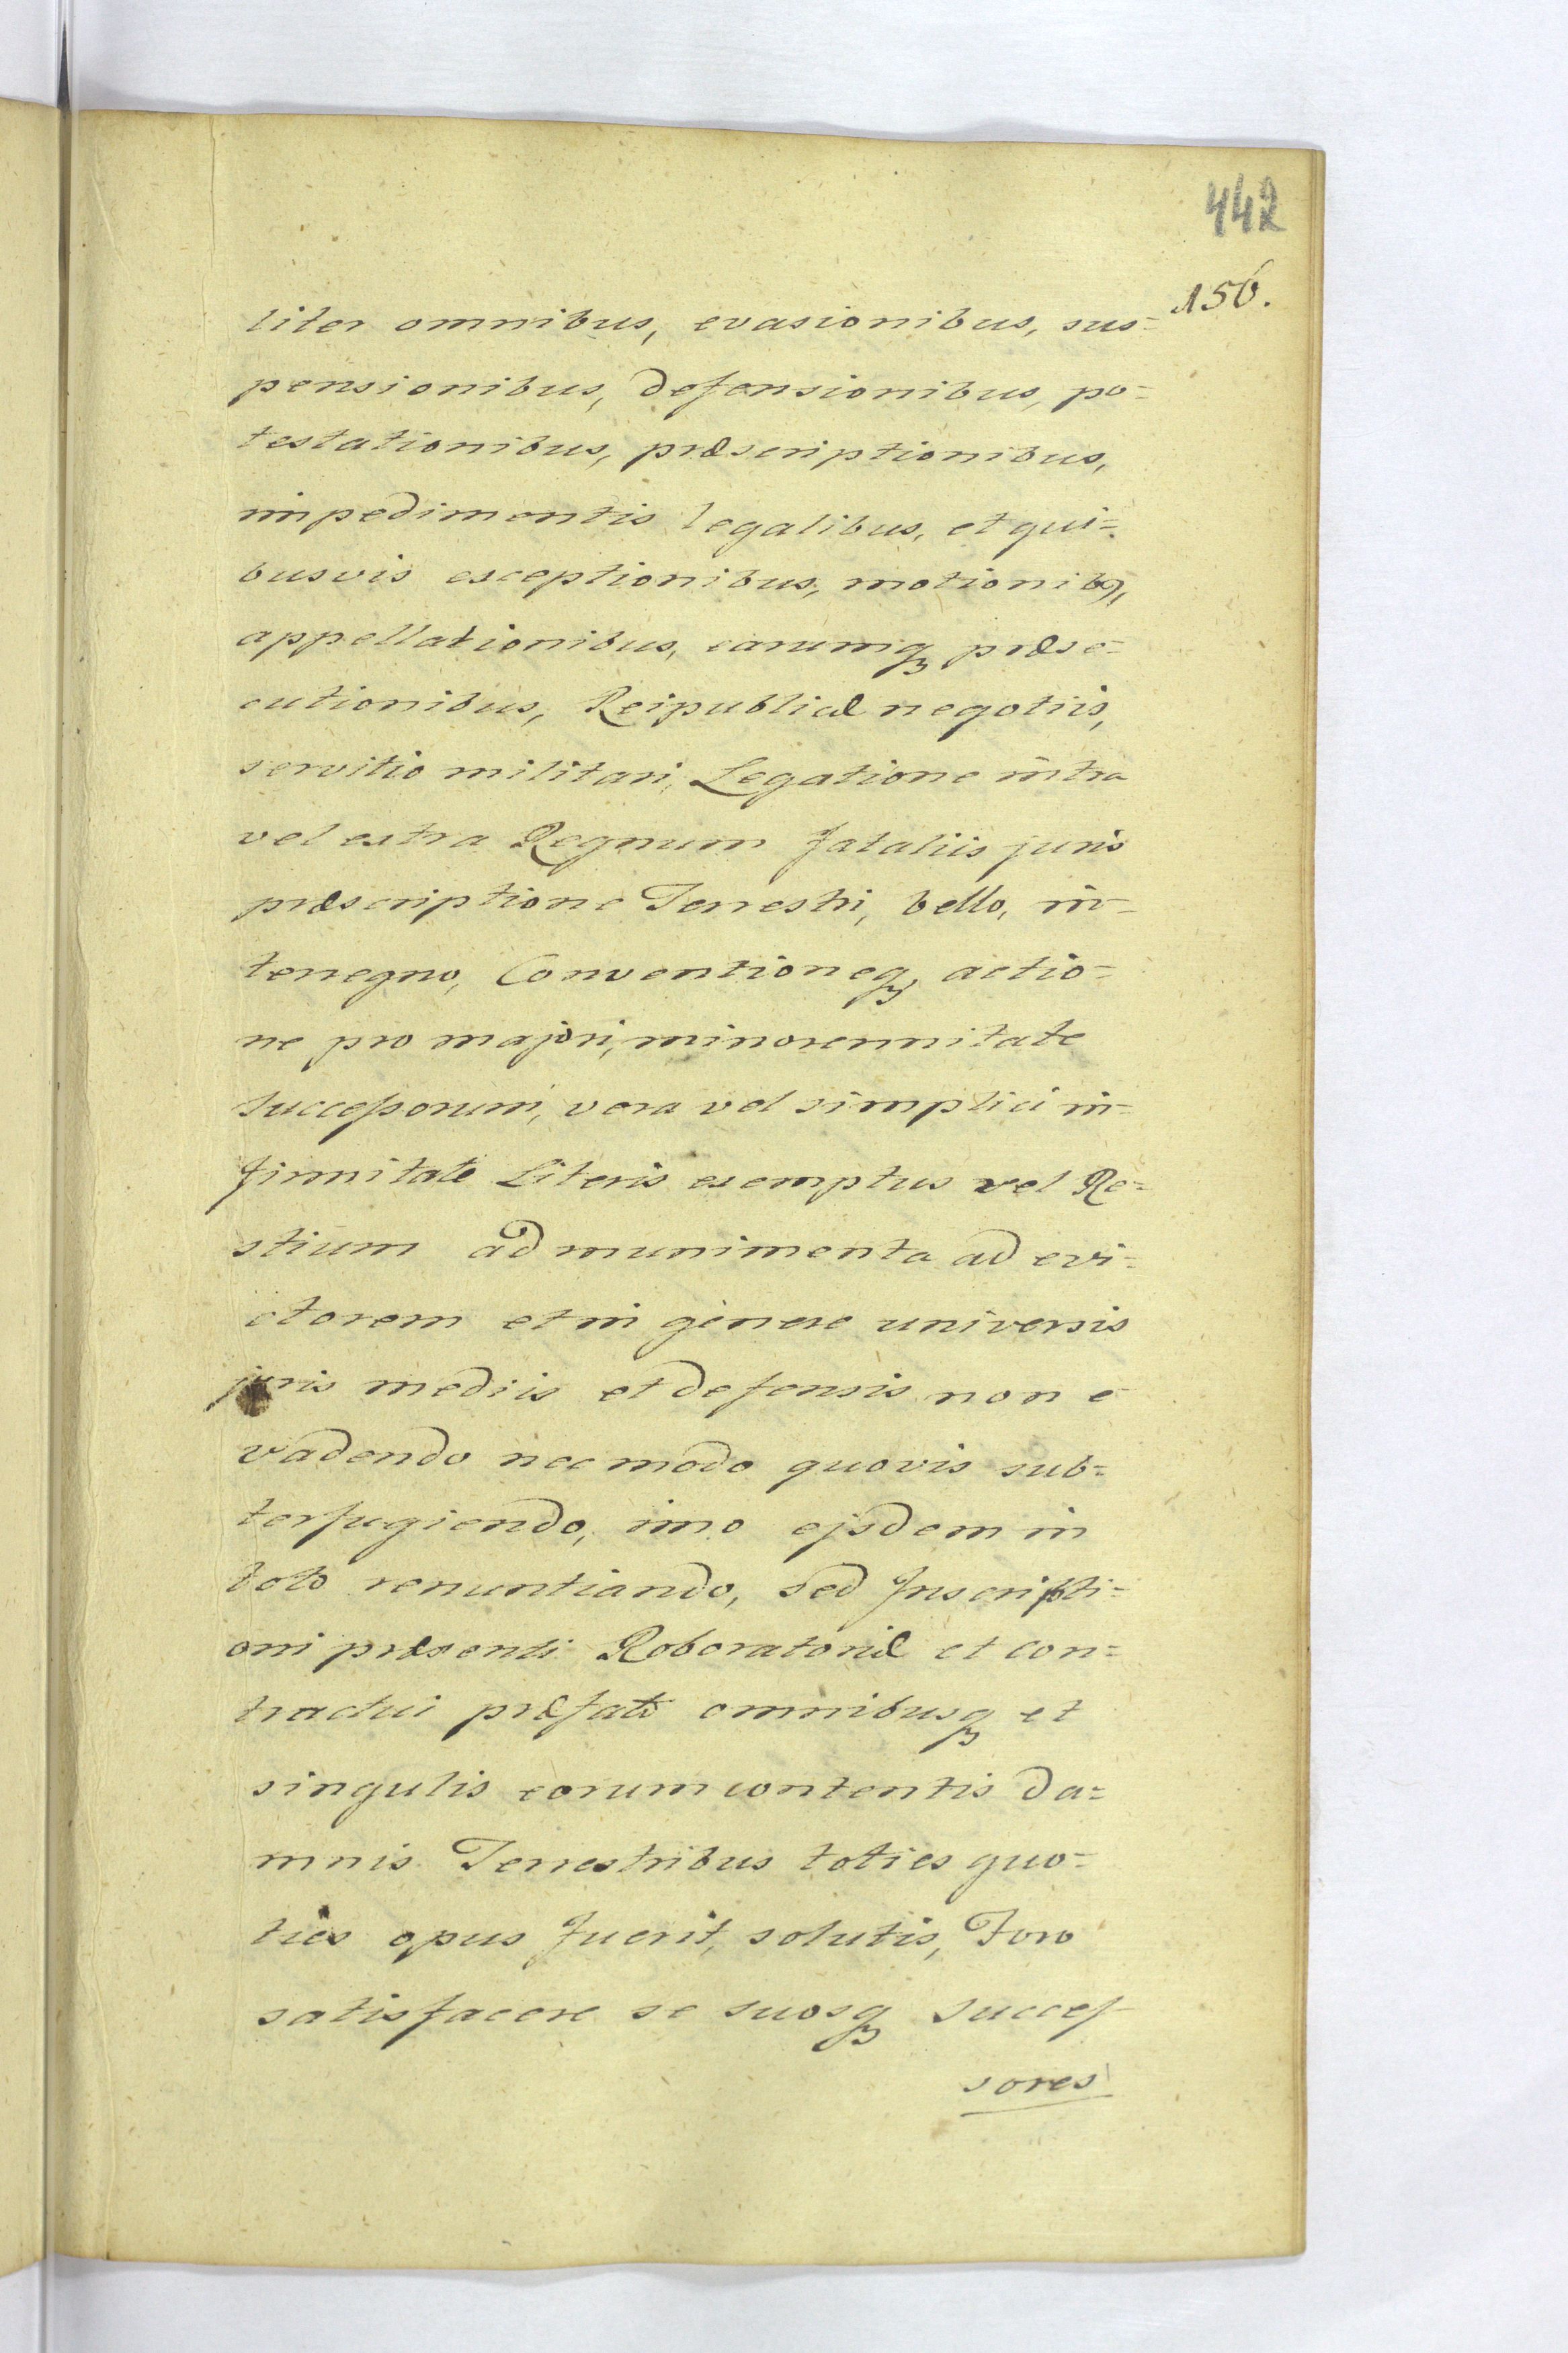 442
156.
liter omnibus, evasionibus, sus=
pensionibus, defensionibus, po=
testationibus, præscriptionibus,
impedimentis legalibus, et qui=
busvis exceptionibus, motionibꝰ,
appellationibus, earumqꝫ prose=
cutionibus, Reipublicæ negotiis,
servitio militari, Legatione intra
vel extra Regnum fataliis juris
præscriptione Terrestri, bello, in=
terregno, Conventioneqꝫ actio=
ne pro majori, minorennitate
Successorum, vera vel simplici in=
firmitate Literis exemptus vel Re=
stium ad munimenta ad evi=
ctorem et in genere universis
juris mediis et defensis non e
vadendo nec modo quovis sub=
terfugiendo, imo ejsdem in
toto renuntiando, sed Inscripti=
oni præsenti Roboratoriæ et con=
tractui præfato omnibusqꝫ et
singulis eorum contentis da=
mnis Terrestribus toties quo=
ties opus fuerit, solutis, Foro
satisfacere se suosqꝫ Succes
sores